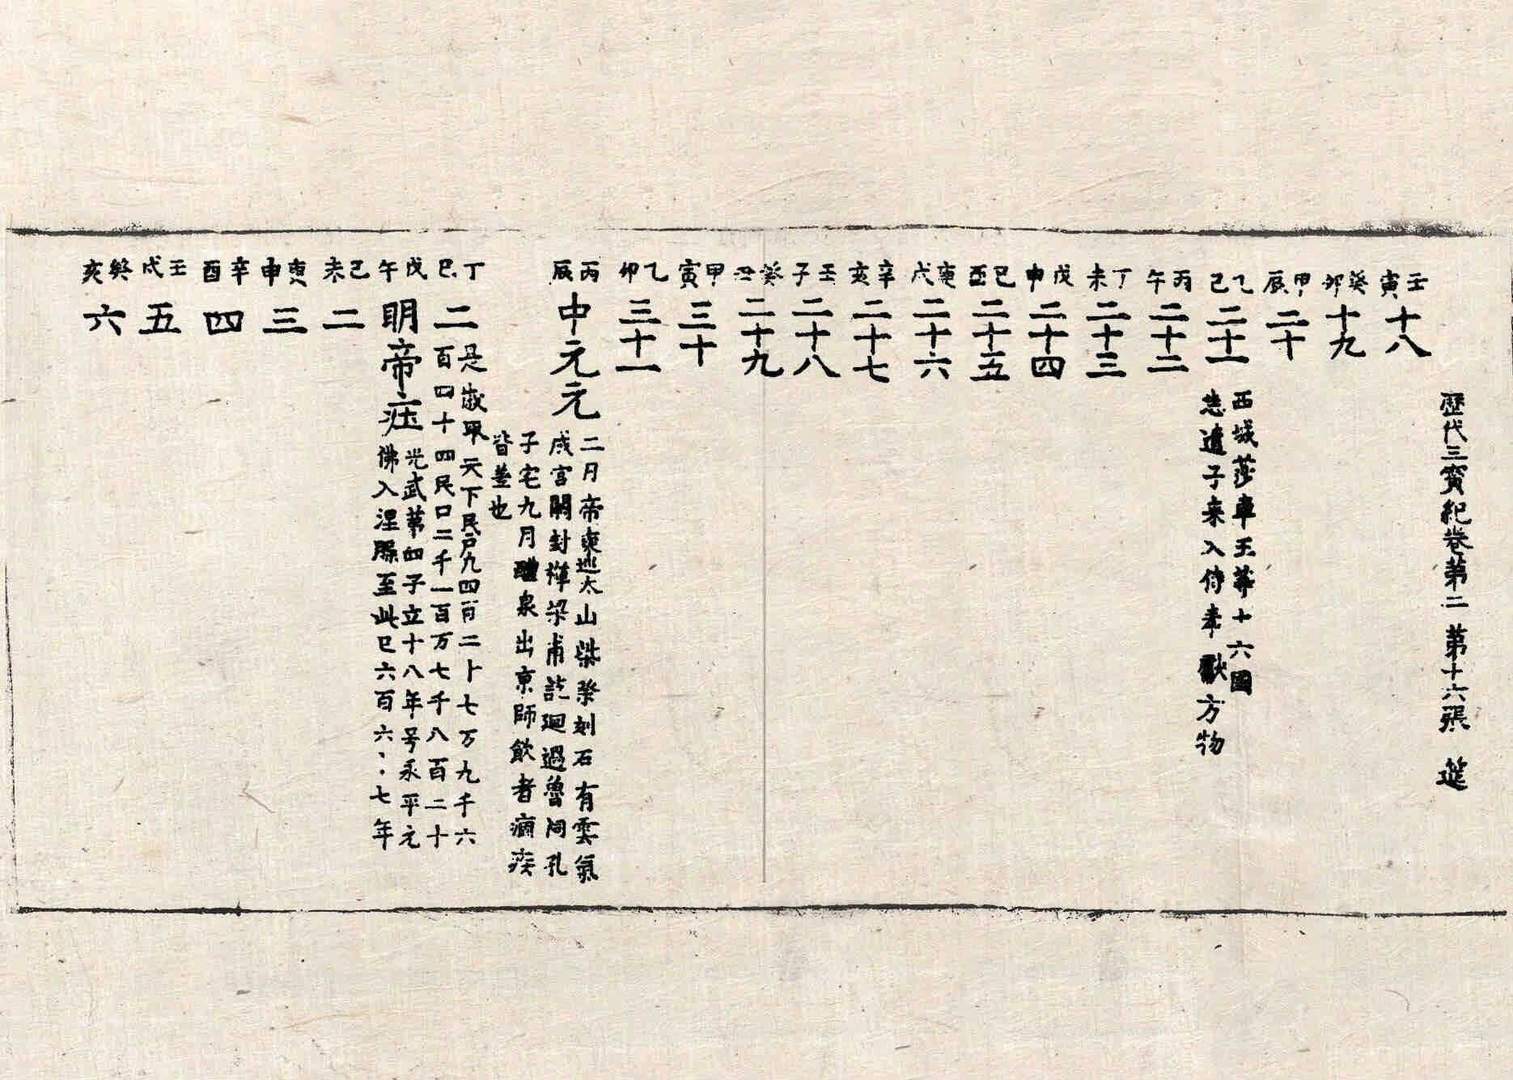 歷代三寳紀卷第二 第十六張 莚
壬寅 十八
癸卯 十九
甲辰 二十
乙巳 二十一 西域莎車王等十六國
悉遣子来入侍奉獻方物
丙午 二十二
丁未 二十三
戊申 二十四
己酉 二十五
庚戌 二十六
辛亥 二十七
壬子 二十八
癸丑 二十九
甲寅 三十
乙卯 三十一
丙辰 中元元 二月帝東巡太山柴祭刻石有雲氣
成宫闕封禪梁甫訖迴過魯問孔
子宅九月醴泉出京師飲者痼疾
皆差也
丁巳 二 是歲𣅀天下民戸九四百二十七万九千六
百四十四民口二千一百万七千八百二十
戊午 明帝庄 光武第四子立十八年号永平元
佛入涅槃至此巳六百六〻七年
己未 二
庚申 三
辛酉 四
壬戌 五
癸亥 六